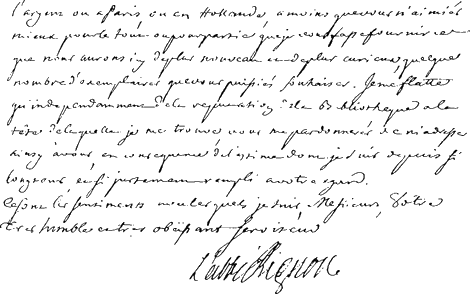 l'argent ou a Paris, ou en Hollande, a moins que vous n'aimiés
mieux pour le tout ou pour partie que je vous fasse fournir ce
que nous aurons icy de plus nouveau et de plus curieux, quelque
nombre d'exemplaires que vous puissiés souhaiter. Je me flatte
qu'independamment de la reputation de la Bibliotheque a la
tête de laquelle je me trouve vous me pardonnerés de m'adresser
ainsy a vous, en consequence de l'estime dont je suis depuis si
longtems, et si justement rempli a votre egard.
Ce sont les sentiments avec lesquels je suis, Messieurs, Votre
tres humble et tres obeissant serviteur
L'abbé Bignon